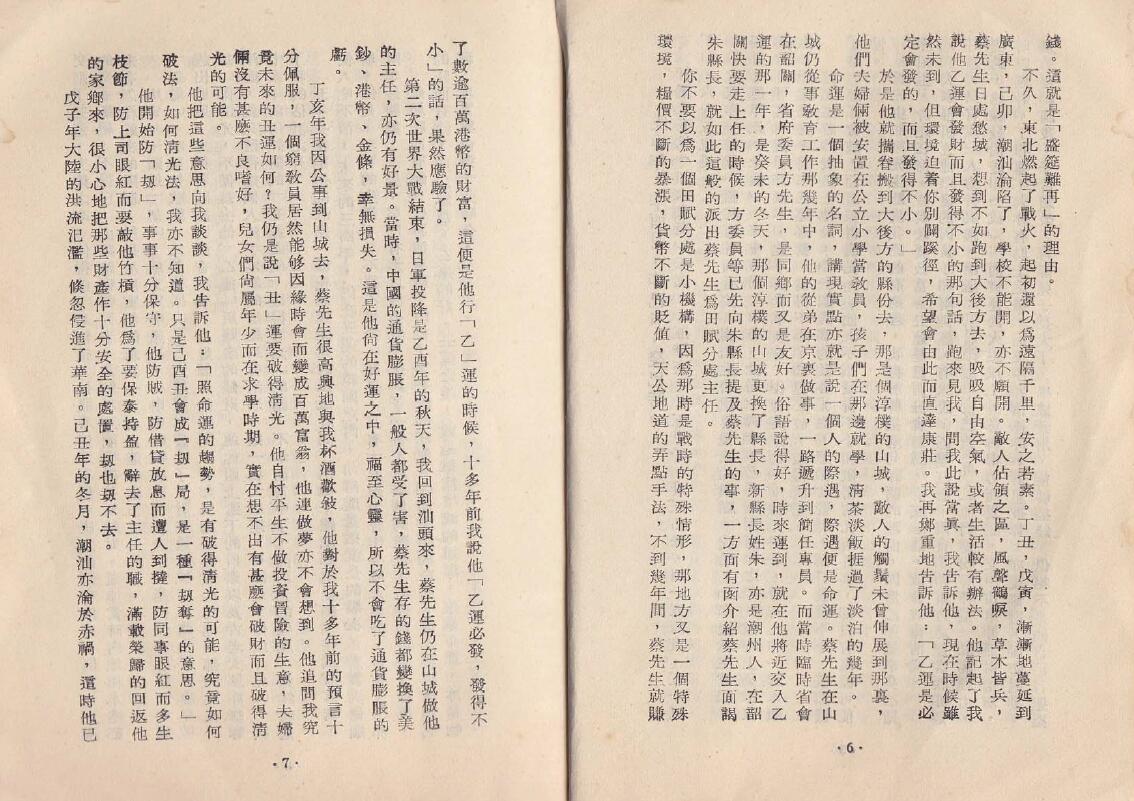 錢。這就是「盛筵難再」的理由。
不久，東北燃起了戰火，起初還以為遠隔千里，安之若素。丁丑，戊寅，漸漸地蔓延到
廣東，己卯，潮汕淪陷了，學校不能開，亦不願開。敵人佔領之區，風聲鶴唳，草木皆兵，
蔡先生日處愁城，想到不如跑到大後方去，吸吸自由空氣，或者生活較有辦法。他記起了我
說他乙運會發財而且發得不小的那句話，跑來見我，問我此說當真，我告訴他，現在時候雖
然未到，但環境迫着你別闢蹊徑，希望會由此而直達康莊。我再鄭重地告訴他：「乙運是必
定會發的，而且發得不小。」
於是他就攜眷搬到大後方的縣份去，那是個淳樸的山城，敵人的觸鬚未曾伸展到那裏，
他們夫婦倆被安置在公立小學當教員，孩子們在那邊就學，清茶淡飯捱過了淡泊的幾年。
命運是一個抽象的名詞，講現實點亦就是說一個人的際遇，際遇便是命運。蔡先生在山
城仍從事教育工作那幾年中，他的從弟在京裏做事，一路遞升到簡任專員。而當時臨時省會
在韶關，省府委員方先生，是同鄉而又是友好。俗語說得好，時來運到，就在他將近交入乙
運的那一年，是癸未的冬天，那個淳樸的山城更換了縣長，新縣長姓朱，亦是潮州人，在韶
關快要走上任的時候，方委員等已先向朱縣長提及蔡先生的事，一方面有函介紹蔡先生面謁
朱縣長，就如此這般的派出蔡先生為田賦分處主任。
你不要以為一個田賦分處是小機構，因為那時是戰時的特殊情形，那地方又是一個特殊
環境，糧價不斷的暴漲，貨幣不斷的貶值，天公地道的弄點手法，不到幾年間，蔡先生就賺
·6·
了數逾百萬港幣的財富，這便是他行「乙」運的時候，十多年前我說他「乙運必發，發得不
小」的話，果然應驗了。
第二次世界大戰結束，日軍投降是乙酉年的秋天，我回到汕頭來，蔡先生仍在山城做他
的主任，亦仍有好景。當時，中國的通貨膨脹，一般人都受了害，蔡先生存的錢都變換了美
鈔、港幣、金條，幸無損失。這是他尙在好運之中，福至心靈，所以不會吃了通貨膨脹的
虧。
丁亥年我因公事到山城去，蔡先生很高興地與我杯酒歡敍，他對於我十多年前的預言十
分佩服，一個窮教員居然能够因緣時會而變成百萬富翁，他連做夢亦不會想到。他追問我究
竟未來的丑運如何？我仍是說「丑」運要破得清光。他自忖平生不做投資冒險的生意，夫婦
倆沒有甚麼不良嗜好，兒女們尙屬年少而在求學時期，實在想不出有甚麼會破財而且破得清
光的可能。
他把這些意思向我談談，我告訴他：「照命運的趨勢，是有破得清光的可能，究竟如何
破法，如何清光法，我亦不知道。只是己酉丑會成『刼』局，是一種『刼奪』的意思。」
他開始防「刼」，事事十分保守，他防賊，防借貸放息而遭人到撻，防同事眼紅而多生
枝節，防上司眼紅而要敲他竹槓，他為了要保泰持盈，辭去了主任的職，滿載榮歸的回返他
的家鄉來，很小心地把那些財產作十分安全的處置，刼也刼不去。
戊子年大陸的洪流氾濫，倏忽侵進了華南。己丑年的冬月，潮汕亦淪於赤禍，這時他已
·7·